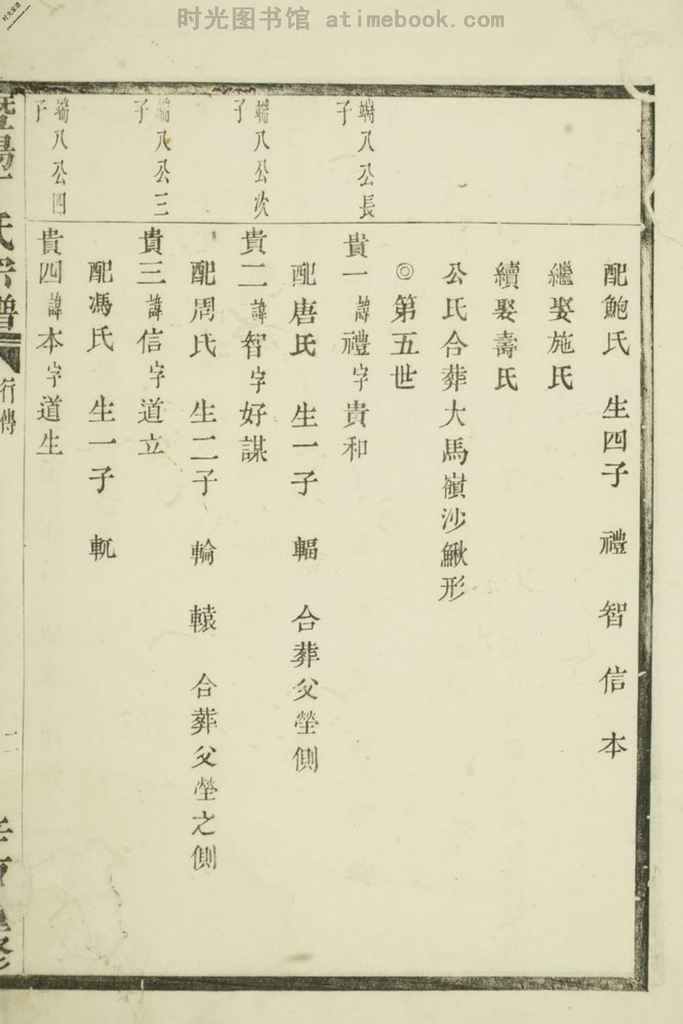 时光图书馆 atimebook.com
配鮑氏 生四子 禮 智 信 本
繼娶施氏
續娶壽氏
公氏合葬大馬嶺沙鰍形
◎第五世
端八公長子
貴一諱禮字貴和
配唐氏 生一子 輻 合葬父塋側
端八公次子
貴二諱智字好謀
配周氏 生二子 輪 轅 合葬父塋之側
端八公三子
貴三諱信字道立
配馮氏 生一子 軏
端八公四子
貴四諱本字道生
氏宗譜
行傳